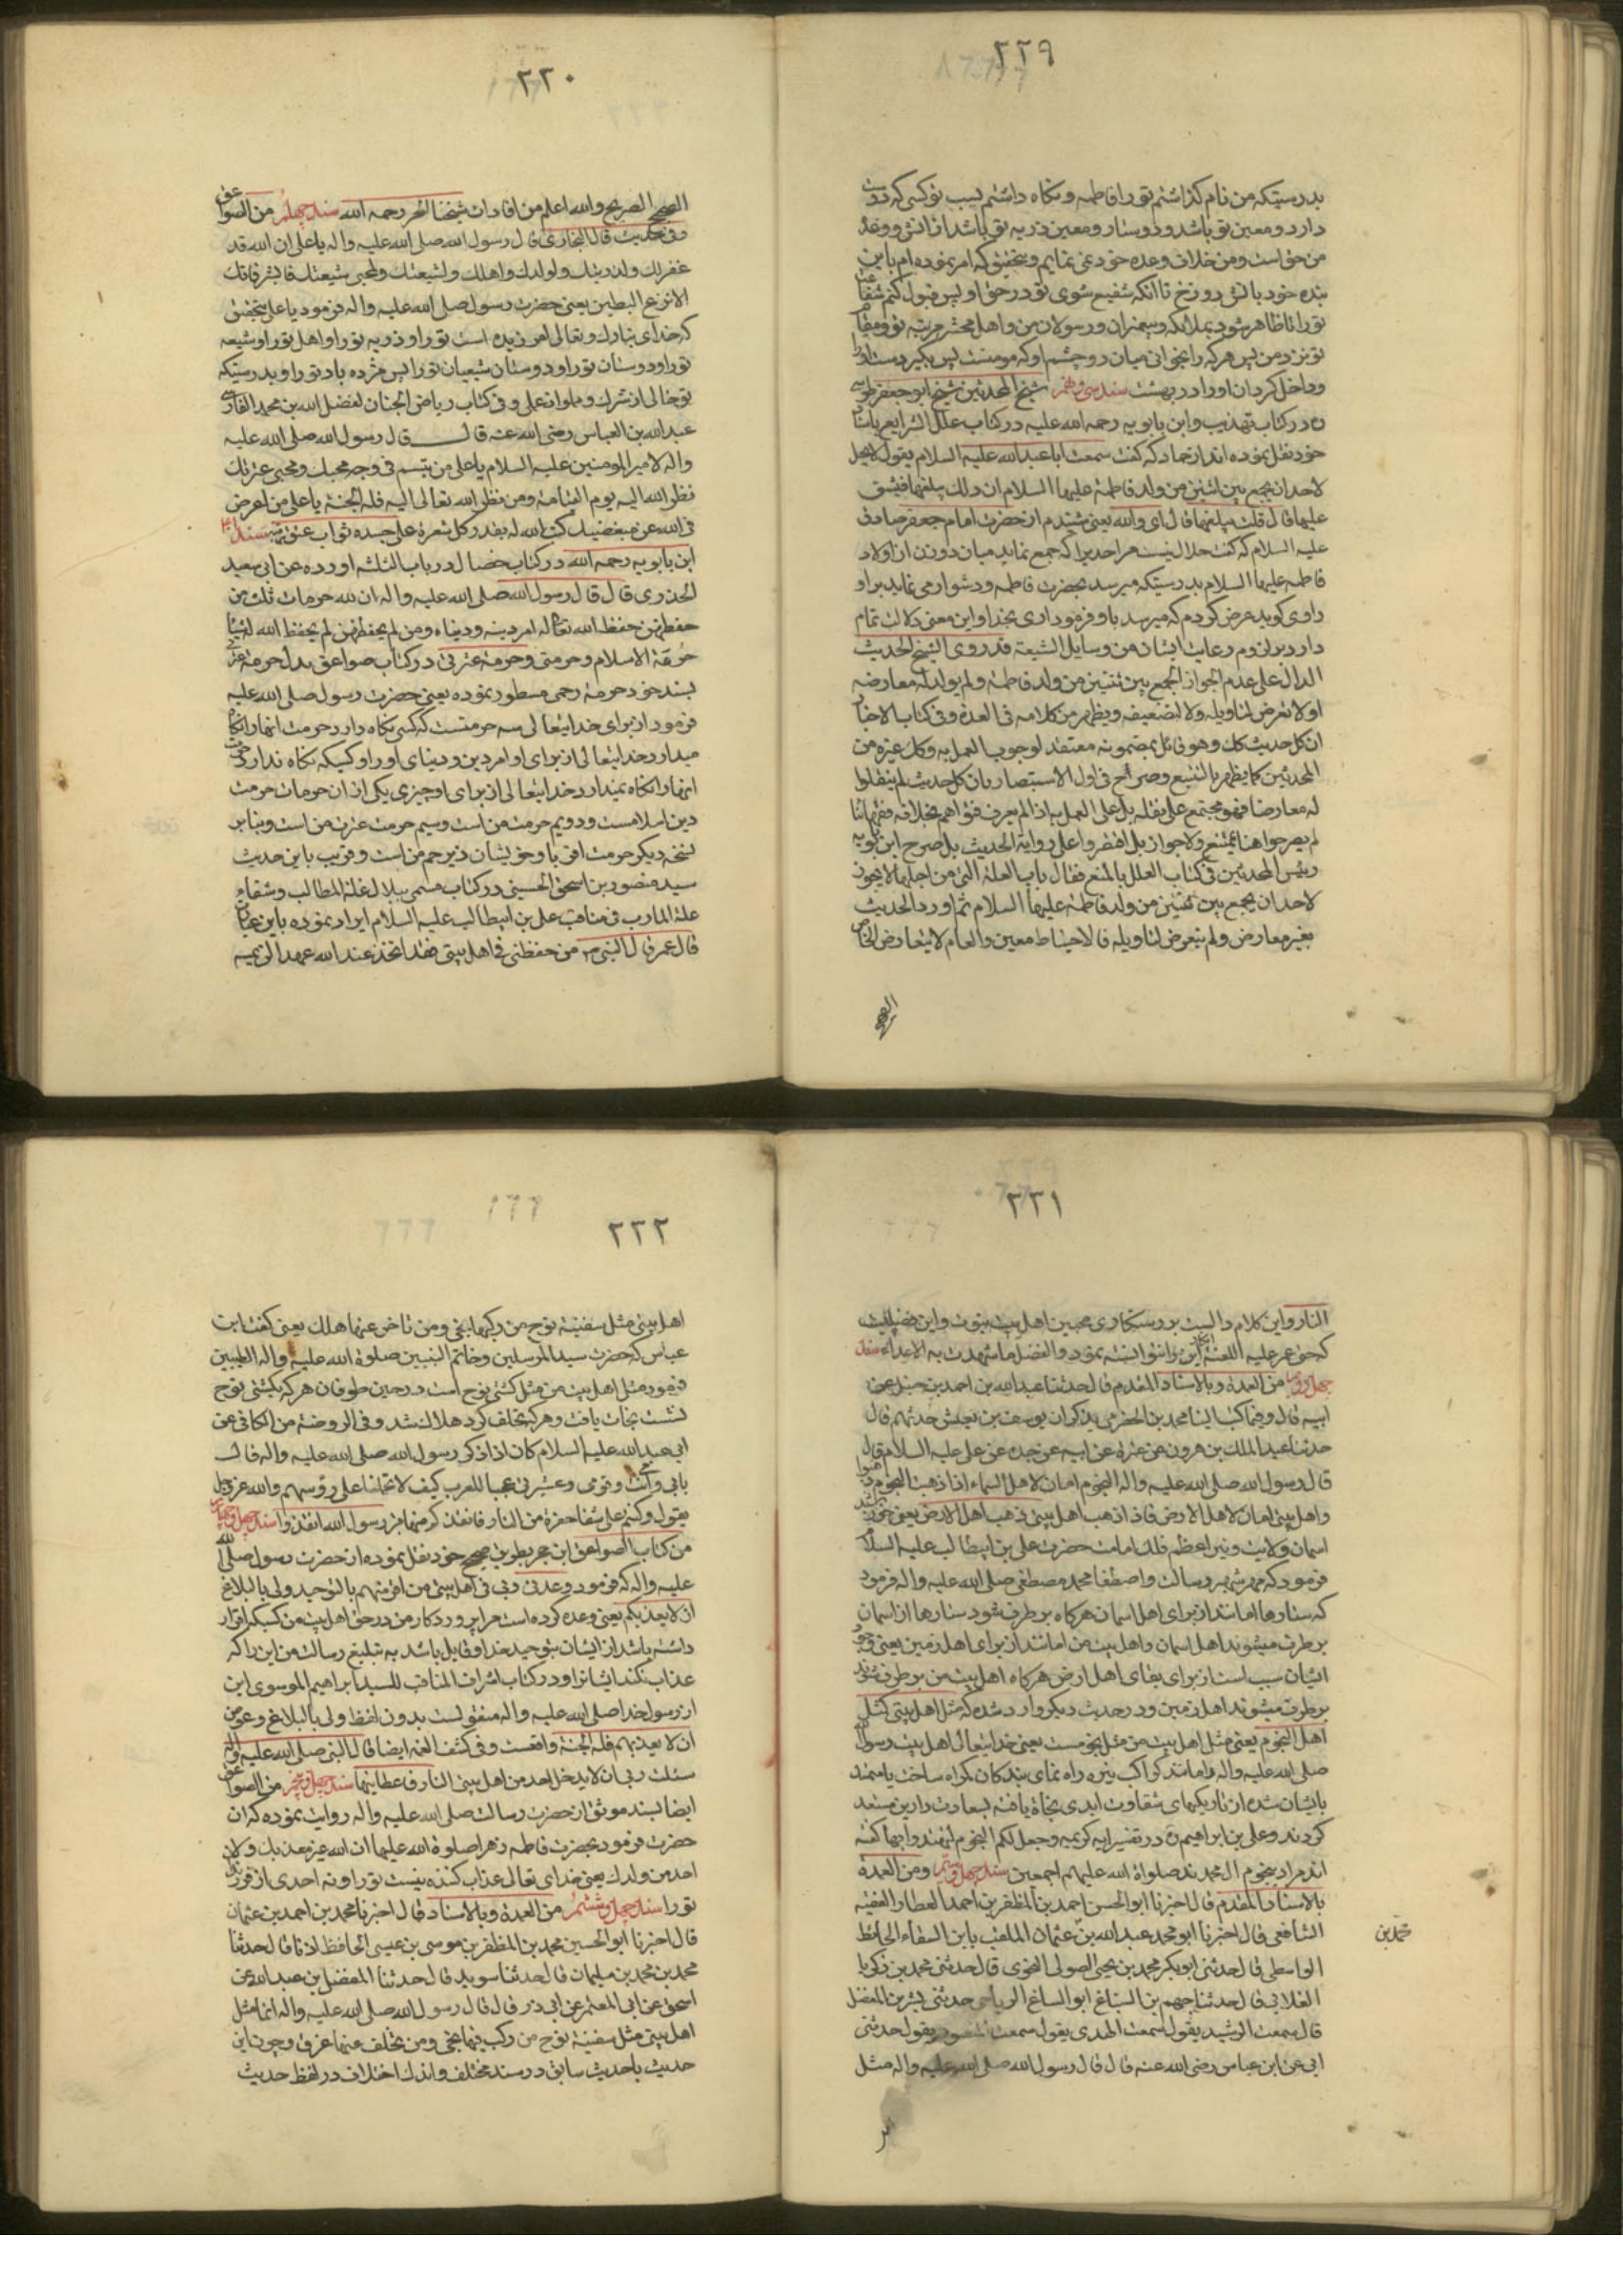 ٢٢٩
بدرستیکه من نام گذاشتم تو را فاطمه و نگاه داشتم بسبب تو کسی که دوست
دارد و معین تو باشد و دوستدار و معین ذریه تو باشد از آتش و وعدهٔ
من حق است و من خلاف وعده خود نمی نمایم و بتحقیق که امر نموده ام باین
بنده خود بآتش دوزخ تا آنکه شفیع شوی تو در حق او پس قبول کنم شفاعت
تو را تا ظاهر شود بملائکه و پیغمبران و رسولان من و اهل محشر مرتبه تو و مقام
تو نزد من پس هر که را بخوانی میان دو چشم او که مومنست پس بگیر دست او را
و داخل گردان او را در بهشت سند سی و نهم شیخ المحدثین شیخ ابو جعفر طوسی
ره در کتاب تهذیب و ابن بابویه رحمه الله علیه در کتاب علل الشرایع باسناد
خود نقل نموده اند از حماد که گفت سمعت ابا عبدالله علیه السلام یقول لا یحل
لاحد ان یجمع بین اثنتین من ولد فاطمة علیها السلام ان ذلک یبلغها فیشق
علیها قال قلت یبلغها قال ای والله یعنی شنیدم از حضرت امام جعفر صادق
علیه السلام که گفت حلال نیست هر احدیرا که جمع نماید میان دو زن از اولاد
فاطمه علیها السلام بدرستیکه میرسد بحضرت فاطمه و دشوار می نماید بر او
راوی گوید عرض کردم که میرسد باو فرمود اری بخدا و این معنی دلالت تمام
دارد بر لزوم رعایت ایشان من وسایل الشیعة قد روی الشیخ الحدیث
الدال علی عدم الجواز الجمع بین ثنتین من ولد فاطمة و لم یورد له معارضه
اولا تعرض لتاویله ولا لتضعیفه و یظهر من کلامه فی العدة و فی کتاب الاخبار
ان کل حدیث کک و هو قائل بمضمونه معتقد لوجوب العمل به و کک غیره من
المحدثین کما یظهر بالتتبع و صرح فی اول الاستبصار بان کل حدیث لم ینقلوا
له معارضا فهو مجتمع علی نقله بل علی العمل به اذا لم یعرف فتواهم بخلافه فقهائنا
لم یصرحوا هنا بمنع ولا جواز بل اقتصروا علی روایة الحدیث بل صرح ابن بابویه
رئیس المحدثین فی کتاب العلل بالمنع فقال باب العلة التی من اجلها لا یجوز
لاحد ان یجمع بین ثنتین من ولد فاطمة علیها السلام ثم اورد الحدیث
بغیر معارض و لم یتعرض لتاویله فالاحتیاط معین والعام لا یتعارض الخاص
الصحیح
٢٢٠
الصحیح الصریح والله اعلم من افادات شیخنا الحر رحمه الله سند چهلم من الصواعق
و فی حدیث قال البخاری قال رسول الله صلی الله علیه واله یا علی ان الله قد
غفر لک ولذریتک ولولدک واهلک ولشیعتک ولمحبی شیعتک فابشر فانک
الانزع البطین یعنی حضرت رسول صلی الله علیه واله فرمود یا علی بتحقیق
که خدای تبارک وتعالی امرزیده است تو را و ذریه تو را و اهل تو را و شیعه
تو را و دوستان تو را و دوستان شیعیان تو را پس مژده باد تو را و بدرستیکه
تو خالی از شرک و مملو از علمی و فی کتاب ریاض الجنان لفضل الله بن محمد الفارسی
عبدالله بن العباس رضی الله عنه قال قال رسول الله صلی الله علیه
واله لامیر المومنین علیه السلام یا علی من تبسم فی وجه محبک ومحبی عترتک
نظر الله الیه یوم القیامة ومن نظر الله تعالی الیه فله الجنة یا علی من اعرض
فی الله عن مبغضیک کتب الله له بقدر کل شعرة علی جسده ثواب عتق رقبة سند
ابن بابویه رحمه الله در کتاب خصال در باب الثلثه اورده عن ابی سعید
الخدری قال قال رسول الله صلی الله علیه واله ان لله حرمات ثلث من
حفظهن حفظ الله تعالی له امر دینه و دنیاه ومن لم یحفظهن لم یحفظ الله له شیئا
حرمة الاسلام وحرمتی وحرمة عترتی در کتاب صواعق بدل حرمة عترتی
بسند خود حرمة رحمی مسطور نموده یعنی حضرت رسول صلی الله علیه
فرمود از برای خدایتعالی سه حرمتست که کسی نگاه دارد حرمت انها را نگاه
میدارد خدایتعالی از برای او امر دین و دنیای او را و کسیکه نگاه ندارد حرمت
انها را نگاه نمیدارد خدایتعالی از برای او چیزی یکی از ان حرمات حرمت
دین اسلامست و دویم حرمت من است و سیم حرمت عترت من است و بنا بر
نسخه دیگر حرمت اقربا و خویشان ذی رحم من است و قریب باین حدیث
سید منصور بن اسحق الحسینی در کتاب مسمی ببلال غلة المطالب وشفاء
علة المارب فی مناقب علی بن ابیطالب علیه السلام ایراد نموده باین عبارت
قال عمر قال النبی ص من حفظنی فی اهل بیتی فقد اتخذ عند الله عهدا لن یمسه
٢٢١
النار و این کلام دالست بر رستگاری محبین اهل بیت نبوت و این فضیلت
که حتی عمر علیه اللعنة انکار این را نتوانسته نمود و الفضل ما شهدت به الاعداء سند
چهل و دوم من العمدة و بالاسناد المقدم قال حدثنا عبدالله بن احمد بن حنبل عن
ابیه قال وفیما کتب الینا محمد بن الحضرمی یذکر ان یوسف بن یعیش حدثهم قال
حدثنا عبدالملک بن هرون عن عنترة عن ابیه عن جده عن علی علیه السلام قال
قال رسول الله صلی الله علیه واله النجوم امان لاهل السماء اذا ذهبت النجوم ذهبوا
واهل بیتی امان لاهل الارض فاذا ذهب اهل بیتی ذهب اهل الارض یعنی خورشید
اسمان ولایت و نیر اعظم فلک امامت حضرت علی بن ابیطالب علیه السلام
فرمود که مهر سپهر رسالت و اصطفا محمد مصطفی صلی الله علیه واله فرمود
که ستارها امانند از برای اهل اسمان هر گاه بر طرف شود ستارها از اسمان
بر طرف میشوند اهل اسمان و اهل بیت من امانند از برای اهل زمین یعنی وجود
ایشان سبب است از برای بقای اهل ارض هر گاه اهل بیت من بر طرف شوند
بر طرف میشوند اهل زمین و در حدیث دیگر وارد شده که مثل اهل بیتی کمثل
اهل النجوم یعنی مثل اهل بیت من مثل نجومست یعنی خدایتعالی اهل بیت رسول
صلی الله علیه واله را مانند کواکب نیره راه نمای بندکان گمراه ساخت تا مهتد
بایشان شده از تاریکیهای شقاوت ابدی نجاة یافته بسعادت دارین مستعد
گردند و علی بن ابراهیم ره در تفسیر ایه کریمه وجعل لکم النجوم لتهتدوا بها گفته
اند مراد بنجوم ال محمدند صلواة الله علیهم اجمعین سند چهل و سیم و من العمدة
بالاسناد المقدم قال اخبرنا ابو الحسن احمد بن المظفر بن احمد العطار الفقیه
الشافعی قال اخبرنا ابو محمد عبدالله بن عثمان الملقب بابن السقاء الحافظ
محمد بن
الواسطی قال حدثنی ابو بکر محمد بن یحیی الصولی النحوی قال حدثنی محمد بن زکریا
الغلابی قال حدثنا جهم بن السباغ ابو السباغ الریاحی حدثنی بشر بن المفضل
قال سمعت الرشید یقول سمعت المهدی یقول سمعت المنصور یقول حدثنی
ابی عن ابن عباس رضی الله عنه قال قال رسول الله صلی الله علیه واله مثل
٢٢٢
اهل بیتی مثل سفینة نوح من رکبها نجی ومن تاخر عنها هلک یعنی گفت ابن
عباس که حضرت سید المرسلین و خاتم النبیین صلوة الله علیه واله الطیبین
فرمود مثل اهل بیت من مثل کشتی نوح است در حین طوفان هر که بکشتی نوح
نشست نجات یافت و هر که تخلف کرد هلاک شد و فی الروضة من الکافی عن
ابی عبدالله علیه السلام کان اذا ذکر رسول الله صلی الله علیه واله قال
بابی وامی وقومی وعشیرتی عجبا للعرب کیف لا تحملنا علی رؤسهم والله عز وجل
یقول وکنتم علی شفا حفرة من النار فانقذکم منها فبرسول الله انقذوا سند چهل و چهارم
من کتاب الصواعق ابن حجر بطریق صحیح خود نقل نموده از حضرت رسول صلی الله
علیه واله که فرمود وعدنی ربی فی اهل بیتی من اقر منهم بالتوحید ولی بالبلاغ
ان لا یعذبهم یعنی وعده کرده است مرا پروردکار من در حق اهل بیت من کسیکه اقرار
داشته باشد از ایشان بتوحید خدا و قایل باشد به تبلیغ رسالت من این را که
عذاب نکند ایشانرا و در کتاب اشراف المناقب للسید ابراهیم الموسوی این
از رسول خدا صلی الله علیه واله منقولست بدون لفظ ولی بالبلاغ و عوض
ان لا یعذبهم فله الجنة واقعست و فی کشف الغمه ایضا قال النبی صلی الله علیه واله
سئلت ربی ان لا یدخل احد من اهل بیتی النار فاعطانیها سند چهل و پنجم من الصواعق
ایضا بسند موثق از حضرت رسالت صلی الله علیه واله روایت نموده که ان
حضرت فرمود بحضرت فاطمه زهرا صلوة الله علیها ان الله غیر معذبک ولا
احد من ولدک یعنی خدای تعالی عذاب کننده نیست تو را و نه احدی از فرزندان
تو را سند چهل و ششم من العمدة و بالاسناد قال اخبرنا محمد بن احمد بن عثمان
قال اخبرنا ابو الحسین محمد بن المظفر بن موسی بن عیسی الحافظ اذنا قال حدثنا
محمد بن محمد بن سلیمان قال حدثنا سوید قال حدثنا المفضل بن عبدالله عن
اسحق عن ابی المعتمر عن ابی ذر قال قال رسول الله صلی الله علیه واله انما مثل
اهل بیتی مثل سفینة نوح من رکب فیها نجی ومن تخلف عنها غرق و چون این
حدیث با حدیث سابق در سند مختلف و اندک اختلاف در لفظ حدیث